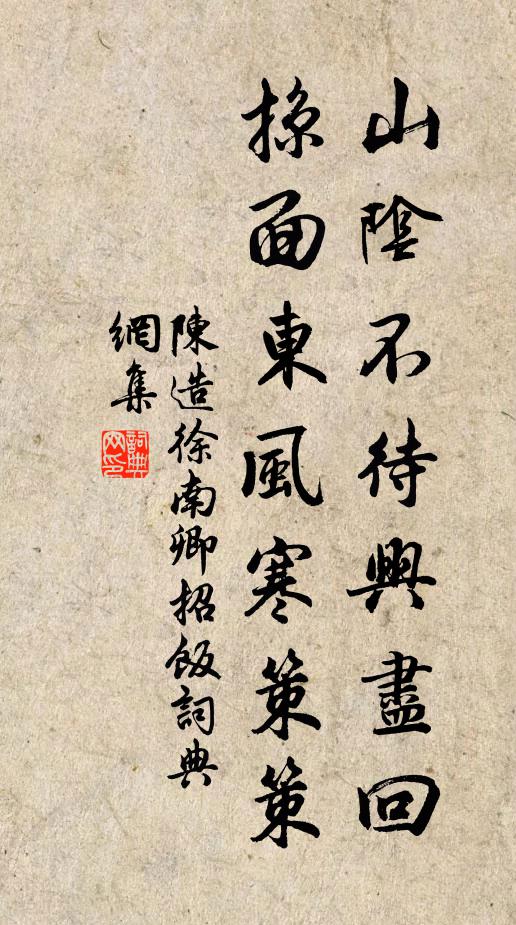 山陰不待興盡回
掠面東風寒策策
陳造徐南卿招飯詞典
網集
詞典網印